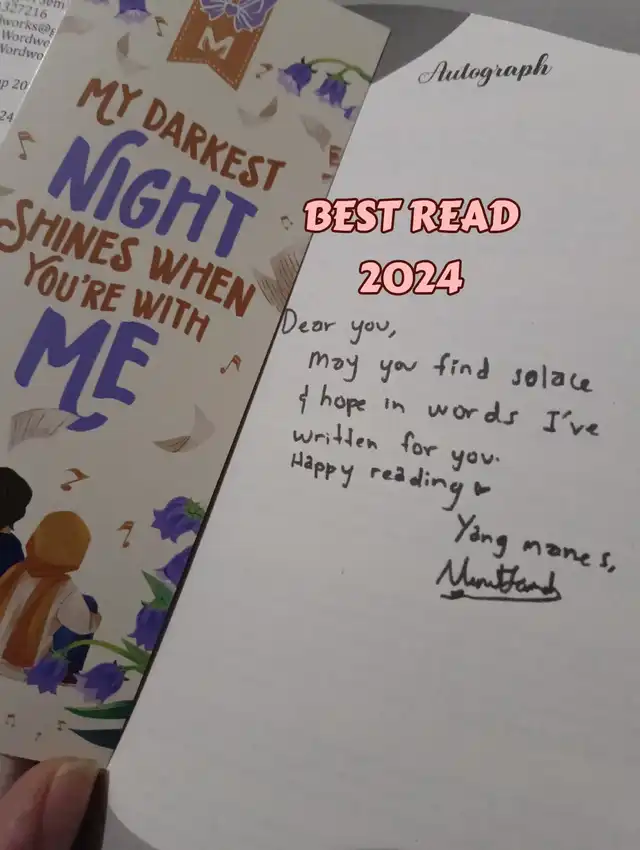 327216
Wordwo
Wordwo
M
MY DARKEST
NIGHT
SHINES WHEN
YOU'RE WITH
ME
Autograph
BEST READ
2024
Dear you,
May you find solace
& hope in words I've
written for you.
Happy reading
Yang manes,